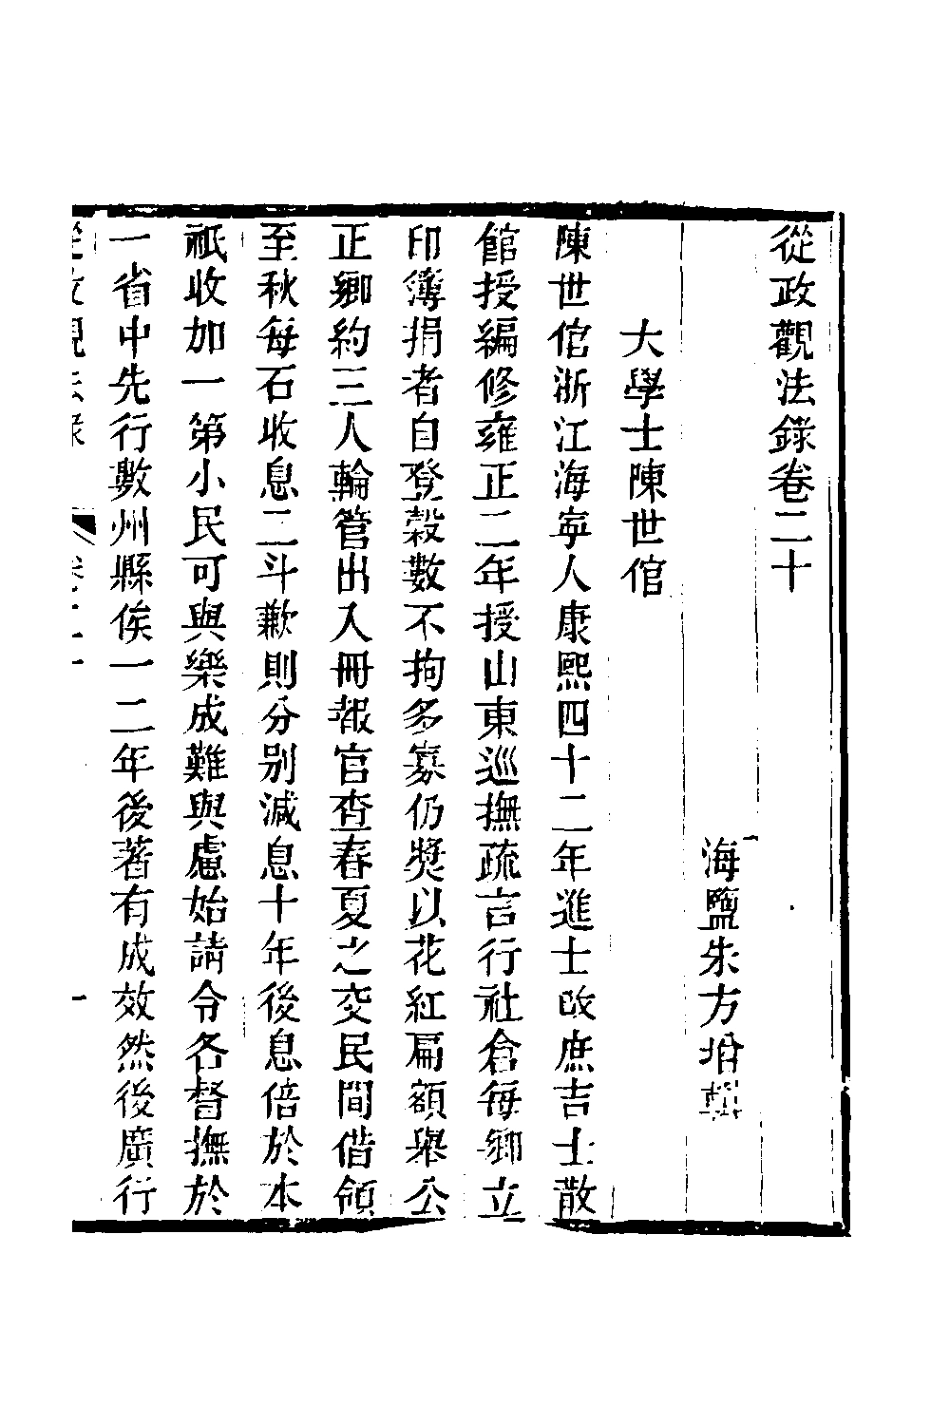 從政觀法錄卷二十
海鹽朱方增輯
大學士陳世倌
陳世倌浙江海寧人康熙四十二年進士改庶吉士散
館授編修雍正二年授山東巡撫疏言行社倉每鄉立
印簿捐者自登穀數不拘多寡仍獎以花紅扁額舉公
正鄉約三人輪管出入冊報官查春夏之交民間借領
至秋每石收息二斗歉則分别減息十年後息倍於本
祇收加一第小民可與樂成難與慮始請令各督撫於
一省中先行數州縣俟一二年後著有成效然後廣行
從政觀法錄 卷二十 一